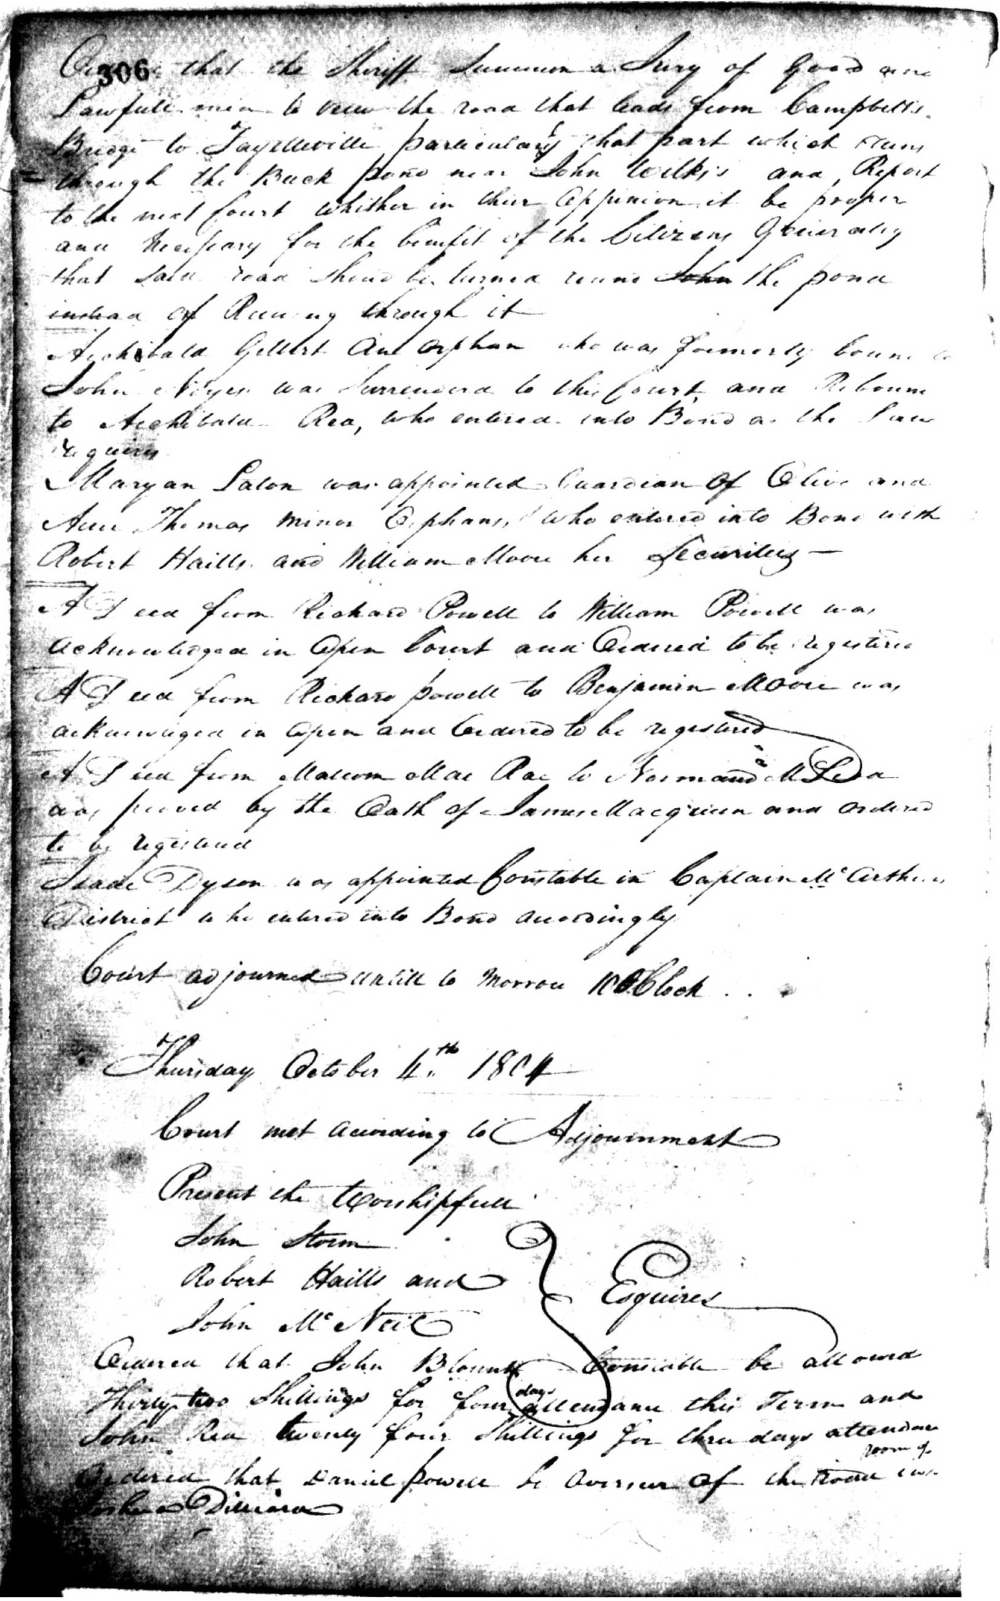 306
Ordered that the Sheriff Summon a Jury of Good and
Lawfull men to view the road that leads from Campbells
Bridge to Fayetteville particularly that part which runs
through the Buck pond near John Wilkis and Report
to the next Court whither in their oppinion it be proper
and Necessary for the benefit of the Citizens Generally
that said road should be turned round John the pond
instead of Running through it
Archibald Gilbert an orphan who was formerly bound to
John was Surrendered to this Court, and Rebound
to Archibald Rea, who entered into Bond as the Law
requires
Maryan was appointed Guardian of Olive and
Ann Thomas minor Orphans, who entered into Bond with
Robert Haills and William Moore her Securities —
A Deed from Richard Powell to William Powell was
acknowledged in open Court and Ordered to be registered
A Deed from Richard powell to Benjamin Moore was
acknowledged in open and Ordered to be registered
A Deed from Malcom Mac Rae to Norman
was proved by the Oath of James Macqueen and ordered
to be registered
Isaac Dyson was appointed Constable in Captain Mc Arthurs
District who entered into Bond accordingly
Court adjourned untill to morrow 10 OClock
Thursday October 4th 1804
Court met according to Adjournment
Present the Worshipfull
John Storm
Robert Haills and
John Mc Neil
Esquires
Ordered that John Blount Constable be allowed
Thirty two Shillings for four days attendance this Term and
John Rea twenty four Shillings for three days attendance
Ordered that Daniel powell be overseer of the road in room of
Dilliard